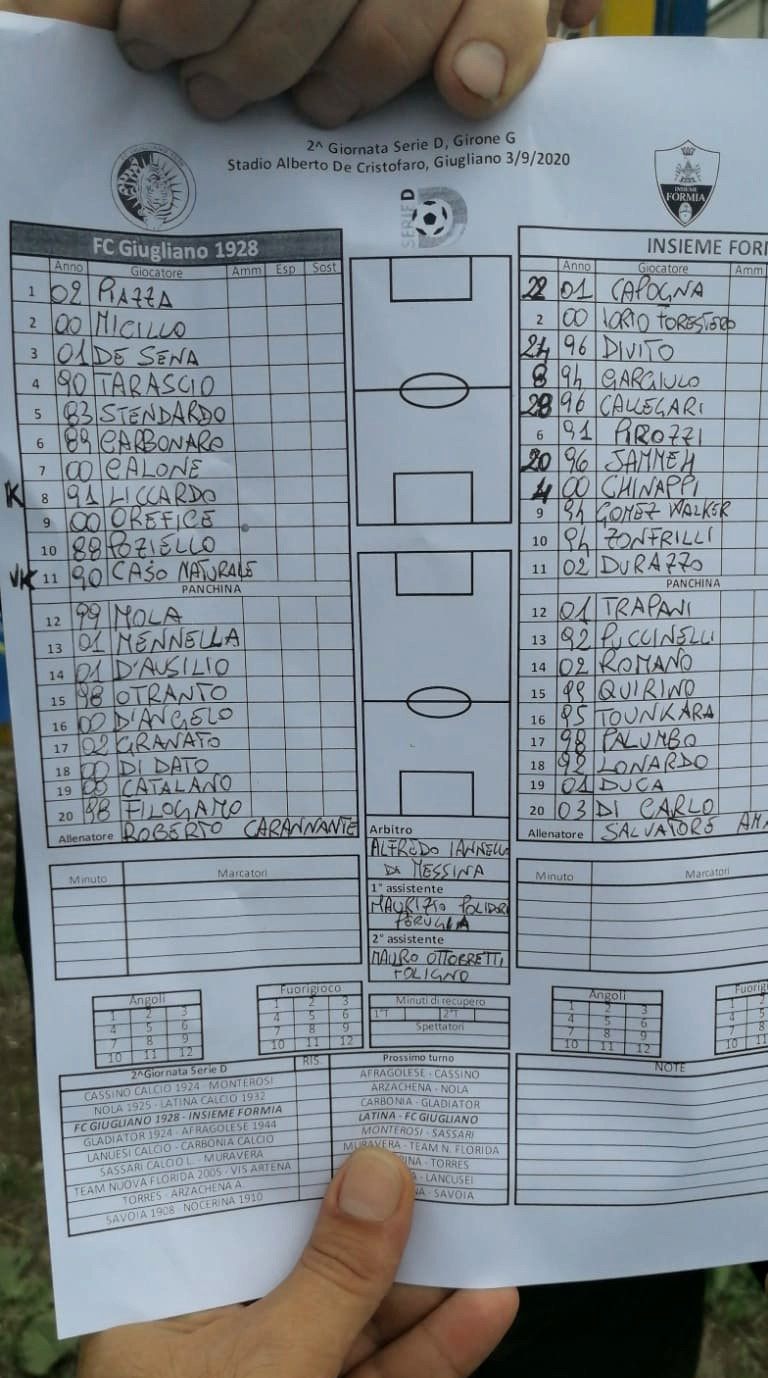 2^ Giornata Serie D, Girone G
Stadio Alberto De Cristofaro, Giugliano 3/9/2020
INSIEME
FORMIA
SERIE D
FC Giugliano 1928
Anno Giocatore Amm Esp Sost
1 02 PIAZZA
2 00 MICILLO
3 01 DE SENA
4 90 TARASCIO
5 83 STENDARDO
6 89 CARBONARO
7 00 CALONE
K 8 91 LICCARDO
9 00 OREFICE
10 88 POZIELLO
VK 11 90 CASO NATURALE
PANCHINA
12 99 MOLA
13 01 MENNELLA
14 01 D'AUSILIO
15 98 OTRANTO
16 00 D'ANGELO
17 02 GRANATO
18 00 DI DATO
19 00 CATALANO
20 98 FILOGAMO
Allenatore ROBERTO CARANNANTE
Minuto Marcatori
Angoli
1 2 3
4 5 6
7 8 9
10 11 12
Fuorigioco
1 2 3
4 5 6
7 8 9
10 11 12
Arbitro
ALFREDO IANNELLO
DI MESSINA
1° assistente
MAURIZIO POLIDORI
PERUGIA
2° assistente
MAURO OTTOBRETTI
FOLIGNO
Minuti di recupero
1°T 2°T
Spettatori
INSIEME
Anno Giocatore Amm
22 01 CAPOGNA
2 00 IORIO FORESTERO
24 96 DIVITO
8 94 GARGIULO
28 96 CALLEGARI
6 91 PIROZZI
20 96 JAMMEH
4 00 CHINAPPI
9 94 GOMEZ WALKER
10 94 ZONFRILLI
11 02 DURAZZO
PANCHINA
12 01 TRAPANI
13 92 PUCCINELLI
14 02 ROMANO
15 99 QUIRINO
16 95 TOUNKARA
17 98 PALUMBO
18 92 LONARDO
19 01 DUCA
20 03 DI CARLO
Allenatore SALVATORE
Minuto Marcatori
Angoli
1 2 3
4 5 6
7 8 9
10 11 12
1 2
4 5
7 8
10 11
2^Giornata Serie D RIS.
CASSINO CALCIO 1924 - MONTEROSI
NOLA 1925 - LATINA CALCIO 1932
FC GIUGLIANO 1928 - INSIEME FORMIA
GLADIATOR 1924 - AFRAGOLESE 1944
LANUESI CALCIO - CARBONIA CALCIO
SASSARI CALCIO L. - MURAVERA
TEAM NUOVA FLORIDA 2005 - VIS ARTENA
TORRES - ARZACHENA A.
SAVOIA 1908 - NOCERINA 1910
Prossimo turno
AFRAGOLESE - CASSINO
ARZACHENA - NOLA
CARBONIA - GLADIATOR
LATINA - FC GIUGLIANO
MONTEROSI - SASSARI
MURAVERA - TEAM N. FLORIDA
- TORRES
- LANCUSEI
- SAVOIA
NOTE